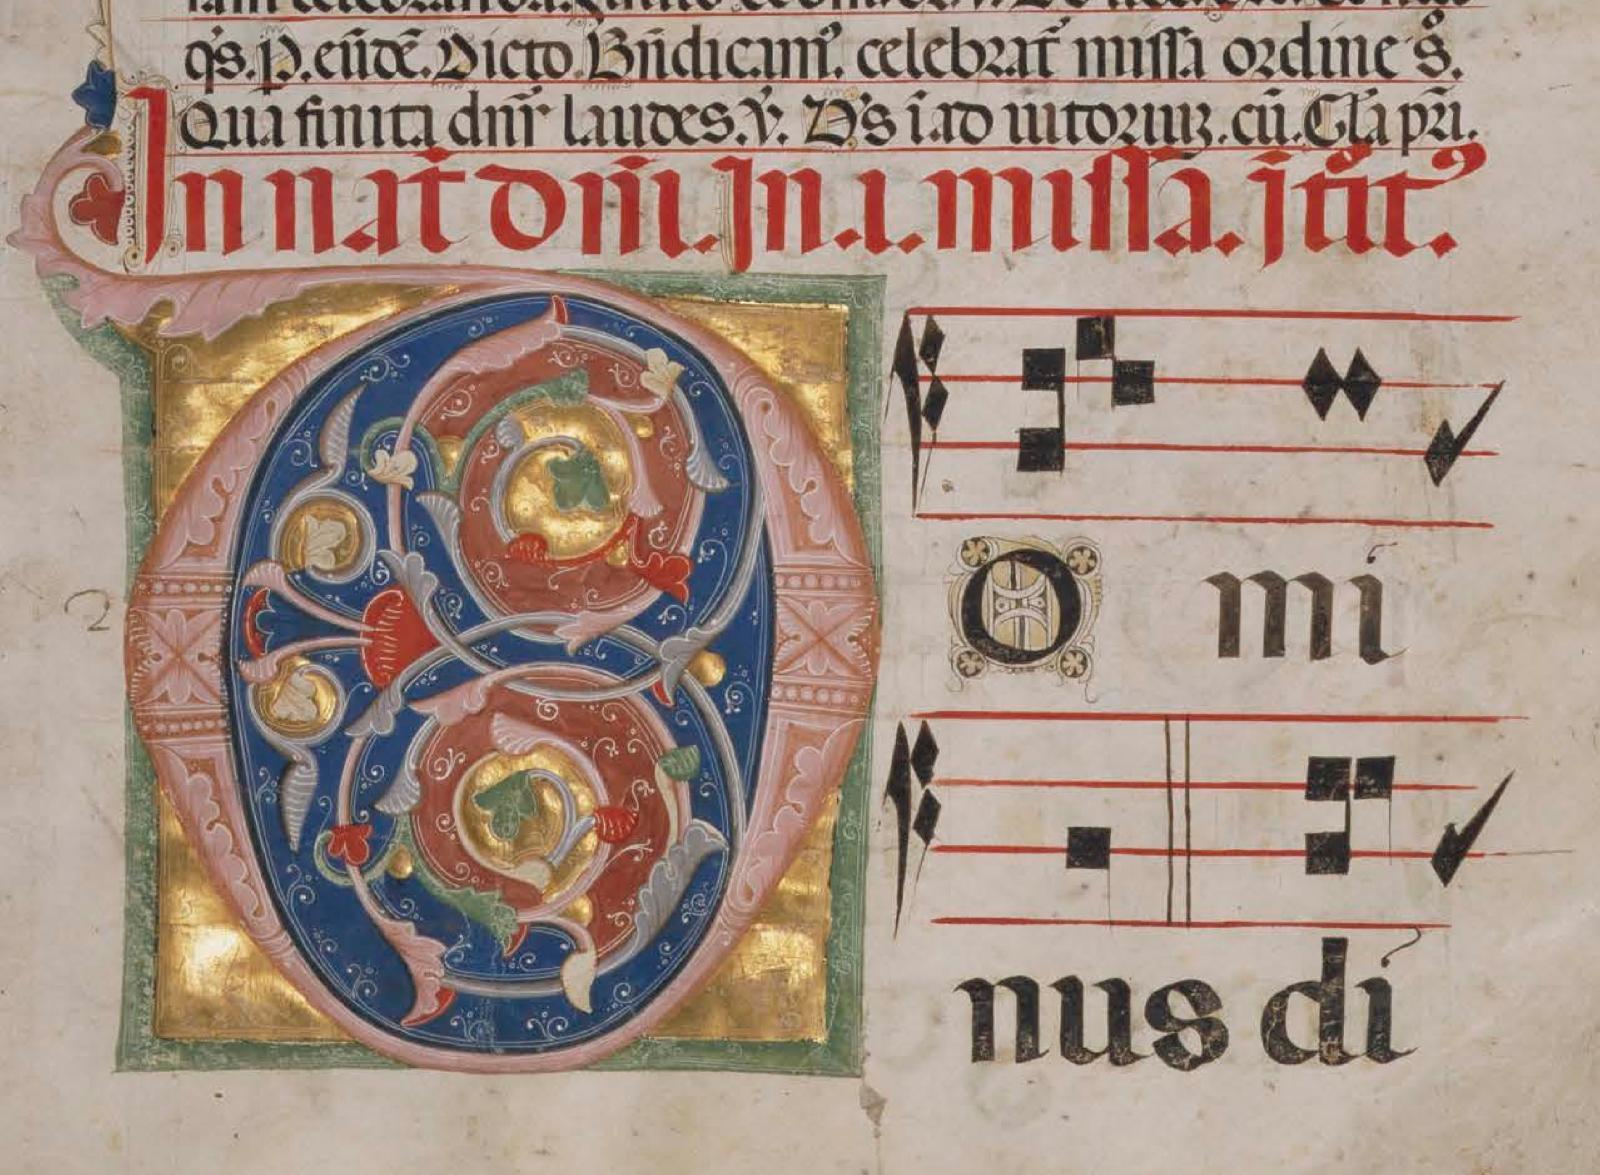 q̄s. p. eūdē. Dicto Bn̄dicam⁹. celebrat̄ missa ordine s̄.
Qua finita dnr̄ laudes. v̄. D's i ad iutoriuz. cū. Gl̄a pr̄i.
In nat̄ dn̄i. In .i. missa. ītit⁹.
D O mi
nus di
2